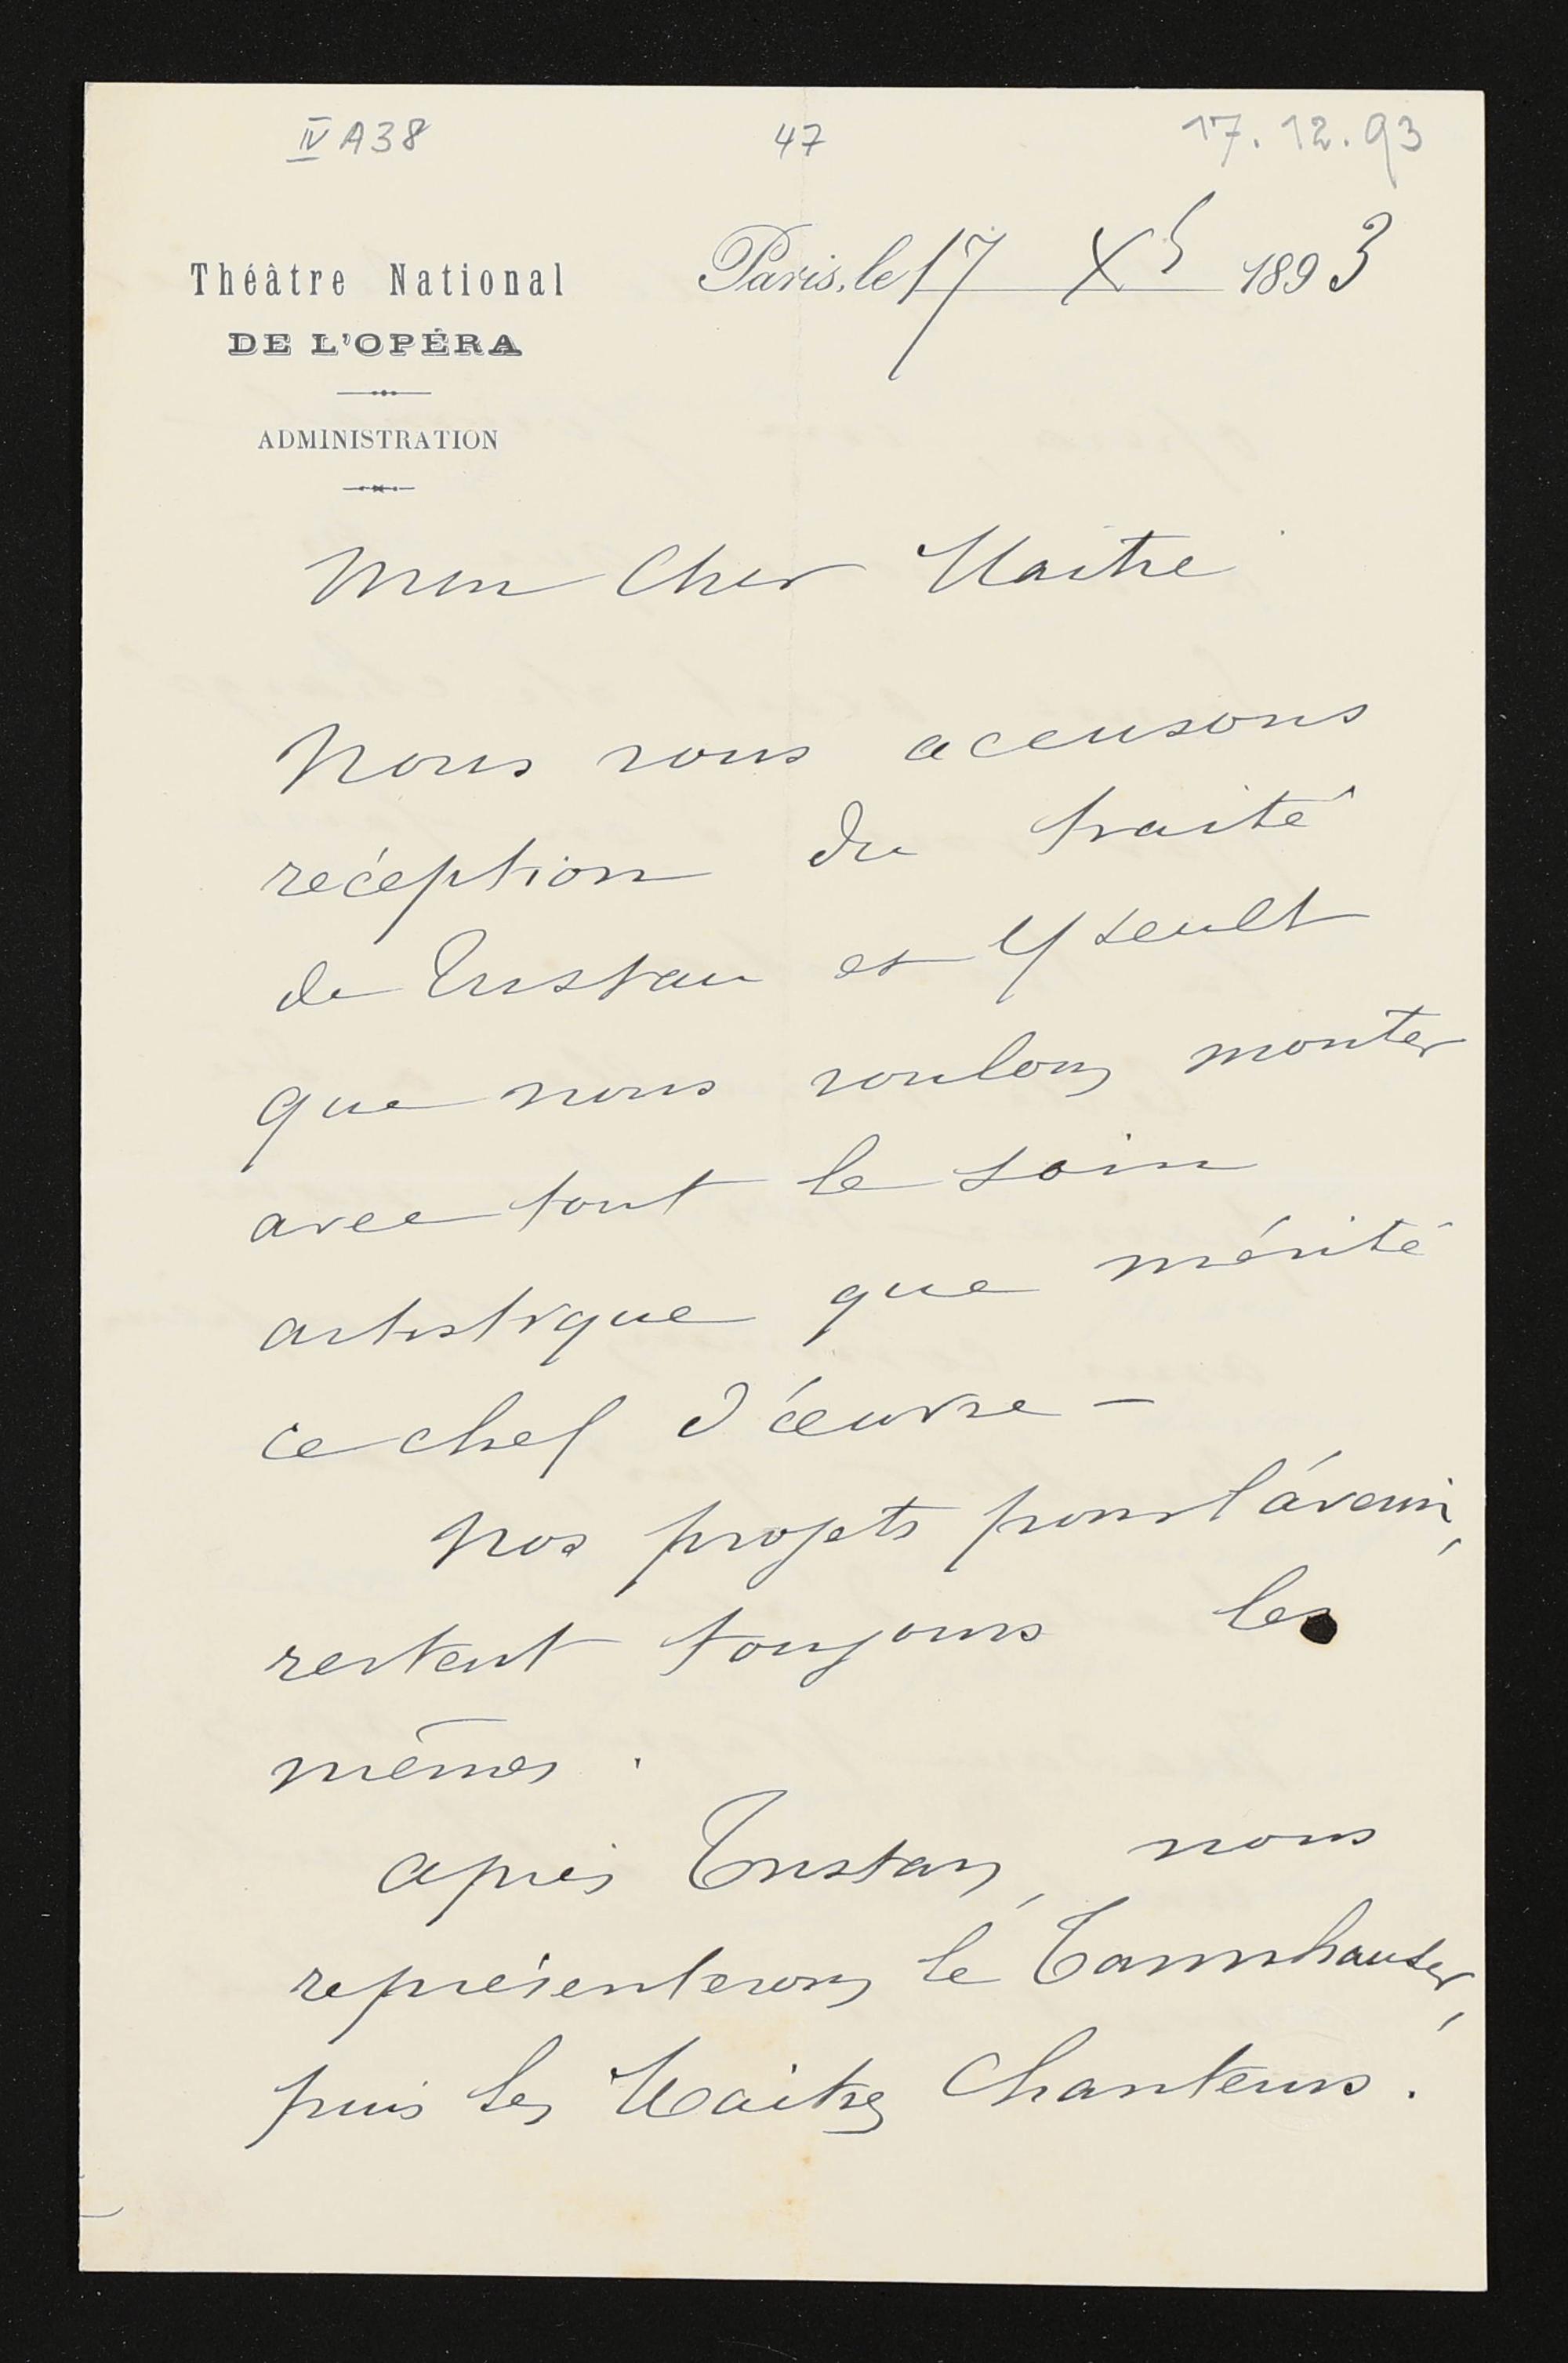 IV A38
47
17.12.93
Théâtre National
DE L'OPÉRA
ADMINISTRATION
Paris, le 17 Xb 1893
Mon Cher Maitre
Nous vous accusons
réception du traité
de Tristan et Yseult
que nous voulons monter
avec tout le soin
artistique que mérite
ce chef d'œuvre -
Nos projets pour l'avenir,
restent toujours les
mêmes.
après Tristan, nous
représenterons le Tannhauser,
puis les Maitres Chanteurs.